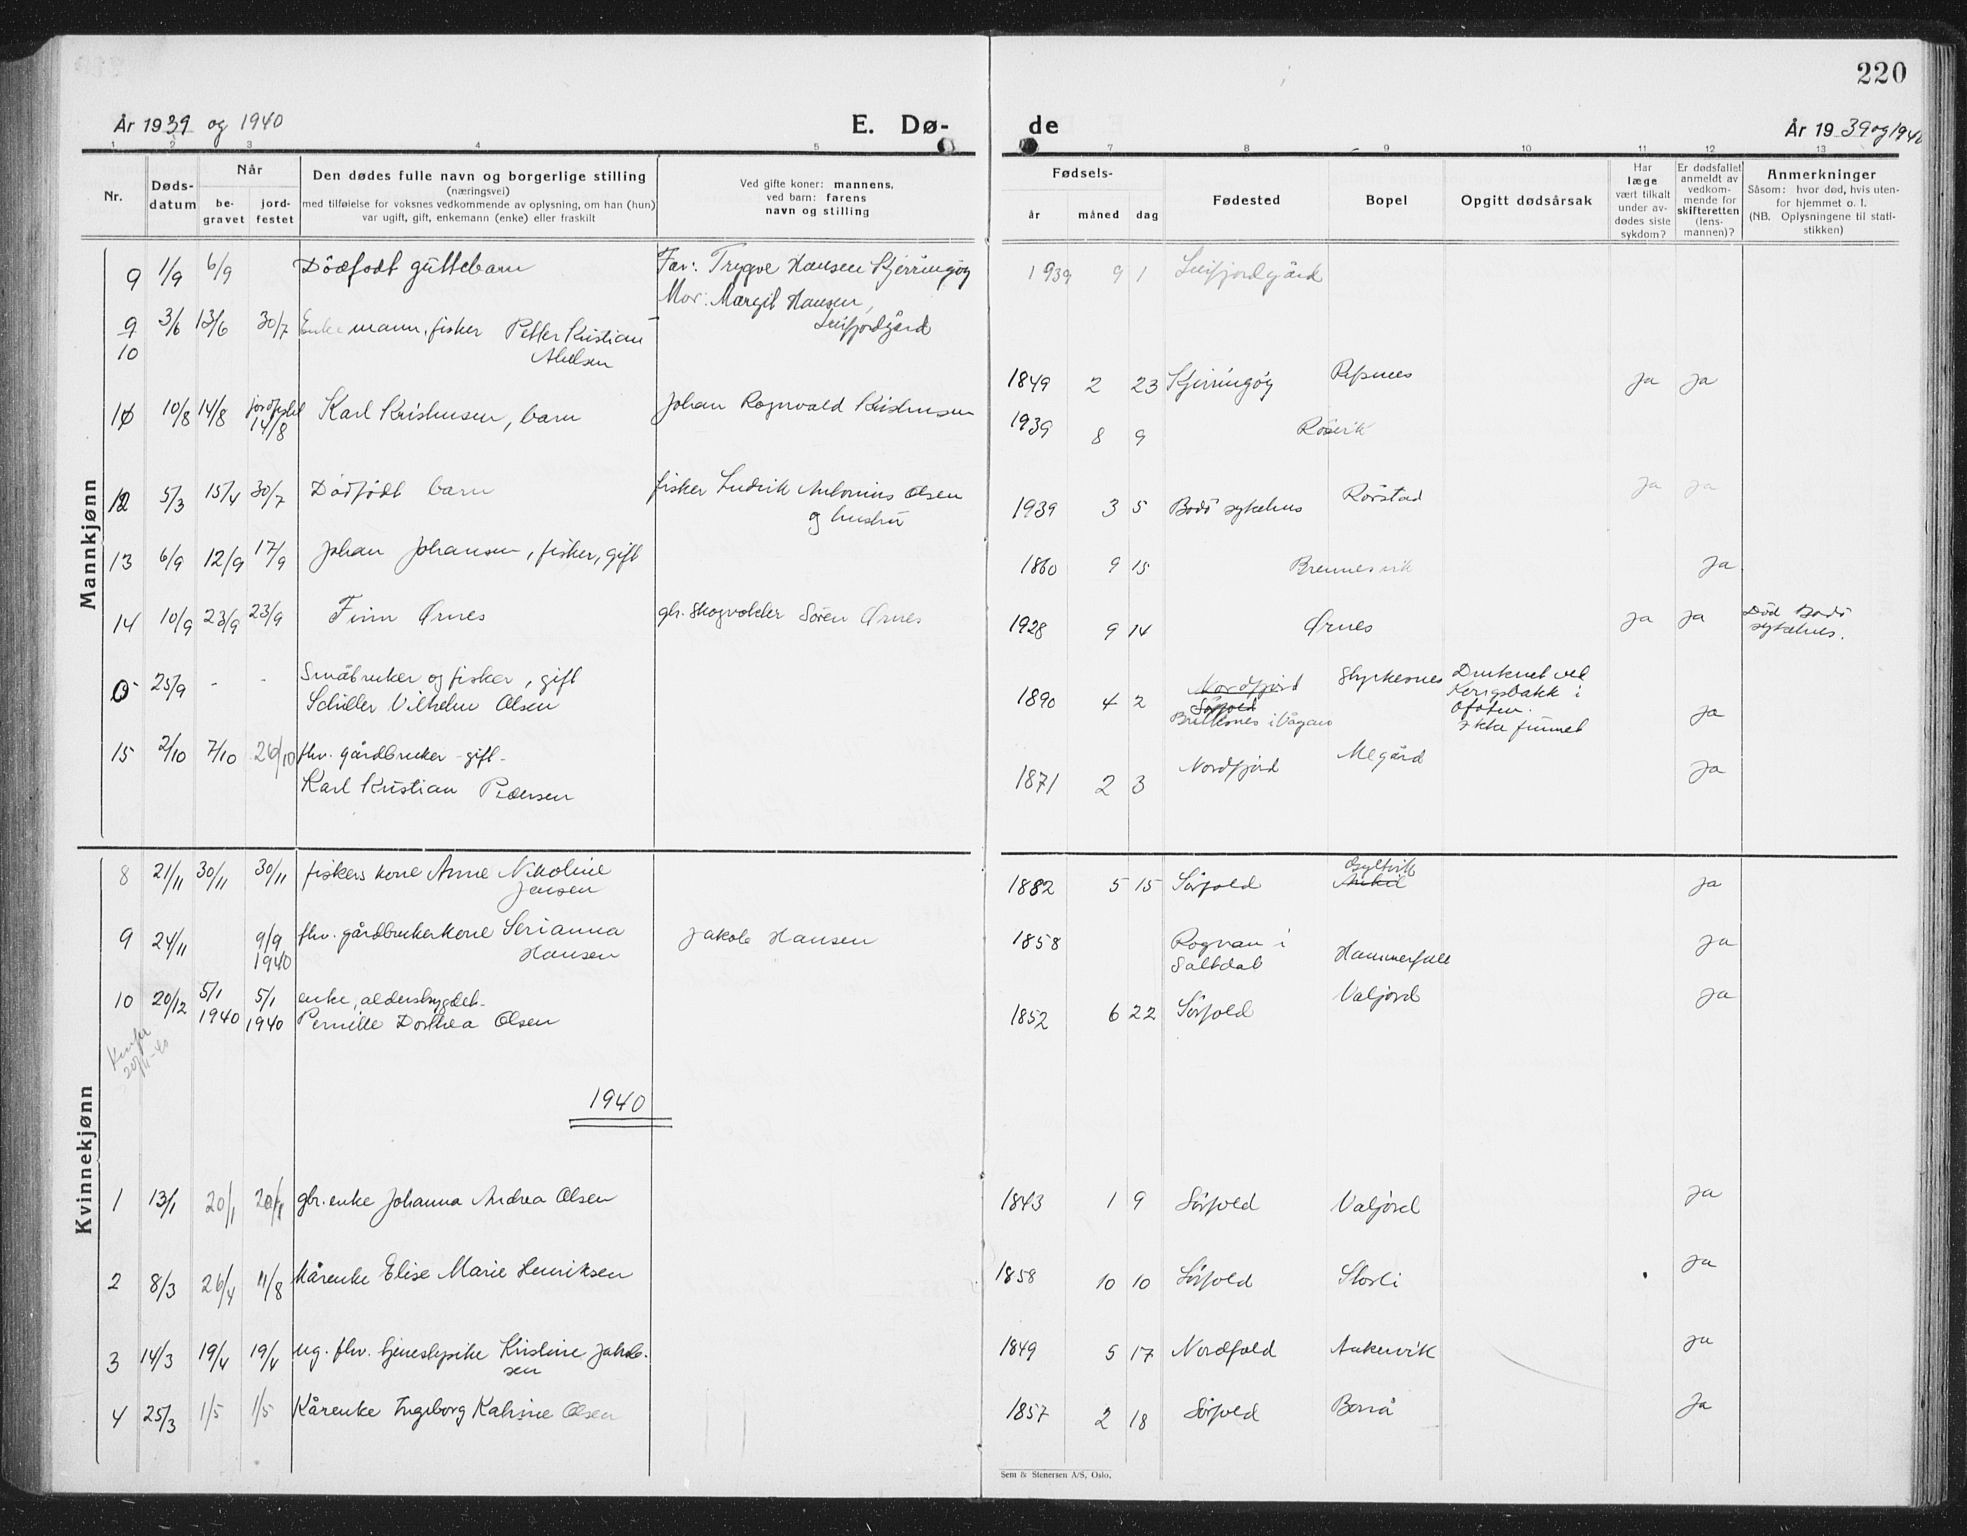 220
År 1939 og 1940
E. Dø-
de
År 19 39 og 1940
1 2 3 4 5 7 8 9 10 11 12 13
Nr.
Døds-
datum
Når
be-
gravet
jord-
festet
Den dødes fulle navn og borgerlige stilling
(næringsvei)
med tilføielse for voksnes vedkommende av oplysning, om han (hun)
var ugift, gift, enkemann (enke) eller fraskilt
Ved gifte koner: mannens,
ved barn: farens
navn og stilling
Fødsels-
år måned dag
Fødested
Bopel
Opgitt dødsårsak
Har
læge
vært tilkalt
under av-
dødes siste
sykdom?
Er dødsfallet
anmeldt av
vedkom-
mende for
skifteretten
(lens-
mannen)?
Anmerkninger
Såsom: hvor død, hvis uten-
for hjemmet o. l.
(NB. Oplysningene til stati-
stikken)
Mannkjønn
9 1/9 6/9 Dödfödt guttebarn Far: Trygve Hansen Kjerringöy 1939 9 1 Leifjordgård
Mor: Margit Hansen,
Leifjordgård
9 3/6 13/6 30/7 Enkemann, fisker Petter Kristian
10 Abelsen 1849 2 23 Kjerringöy Ja Ja
10/8 14/8 jordfestet Karl Kristensen, barn Johan Rognvald Kristensen 1939 8 9 Rösvik
14/8
12 5/3 15/4 30/7 Dödfödt barn fisker Ludvik Antonius Olsen 1939 3 5 Bodö sykehus Rörstad Ja Ja
og hustru
13 6/9 12/9 17/9 Johan Johansen, fisker, gift 1860 9 15 Brennesvik Ja
14 10/9 23/9 23/9 Finn Ørnes gbr. Skogvokter Sören Ørnes 1928 9 14 Ørnes Ja Ja Död Bodö
sykehus.
0 25/9 - - Småbruker og fisker, gift
Schiller Vilhelm Olsen 1890 4 2 Nordfjord Styrkesnes Druknet ved
Sörfold
Brettesnes i Vågan i
Ofoten.
Ikke funnet Ja
15 2/10 7/10 26/10 fhv. gårdbruker -gift-
Karl Kristian Pedersen 1871 2 3 Nordfjord Megård Ja
Kvinnekjønn
8 21/11 30/11 30/11 fiskers kone Anne Nikoline
Jensen 1882 5 15 Sörfold Gyltvik Ja
9 24/11 9/9 fhv. gårdbrukerkone Serianna
1940 Hansen Jakob Hansen 1858 Rognan i Hammerfall Ja
Saltdal
10 20/12 5/1 5/1 enke, alderstrygdet-
1940 1940 Pernille Dorthea Olsen 1852 6 22 Sörfold Valjord Ja
20/11-40
1940
1 13/1 20/1 20/1 gbr. enke Johanna Andrea Olsen 1843 1 9 Sörfold Valjord Ja
2 8/3 26/4 11/8 Kårenke Elise Marie Henriksen 1858 10 10 Sörfold Storli Ja
3 14/3 19/4 19/4 ug. fhv. tjenestepike Kristine Jakob-
sen 1849 5 17 Nordfold Ankervik Ja
4 25/3 1/5 1/5 Kårenke Ingeborg Katrine Olsen 1857 2 18 Sörfold Bonnå Ja
Sem & Stenersen A/S, Oslo.